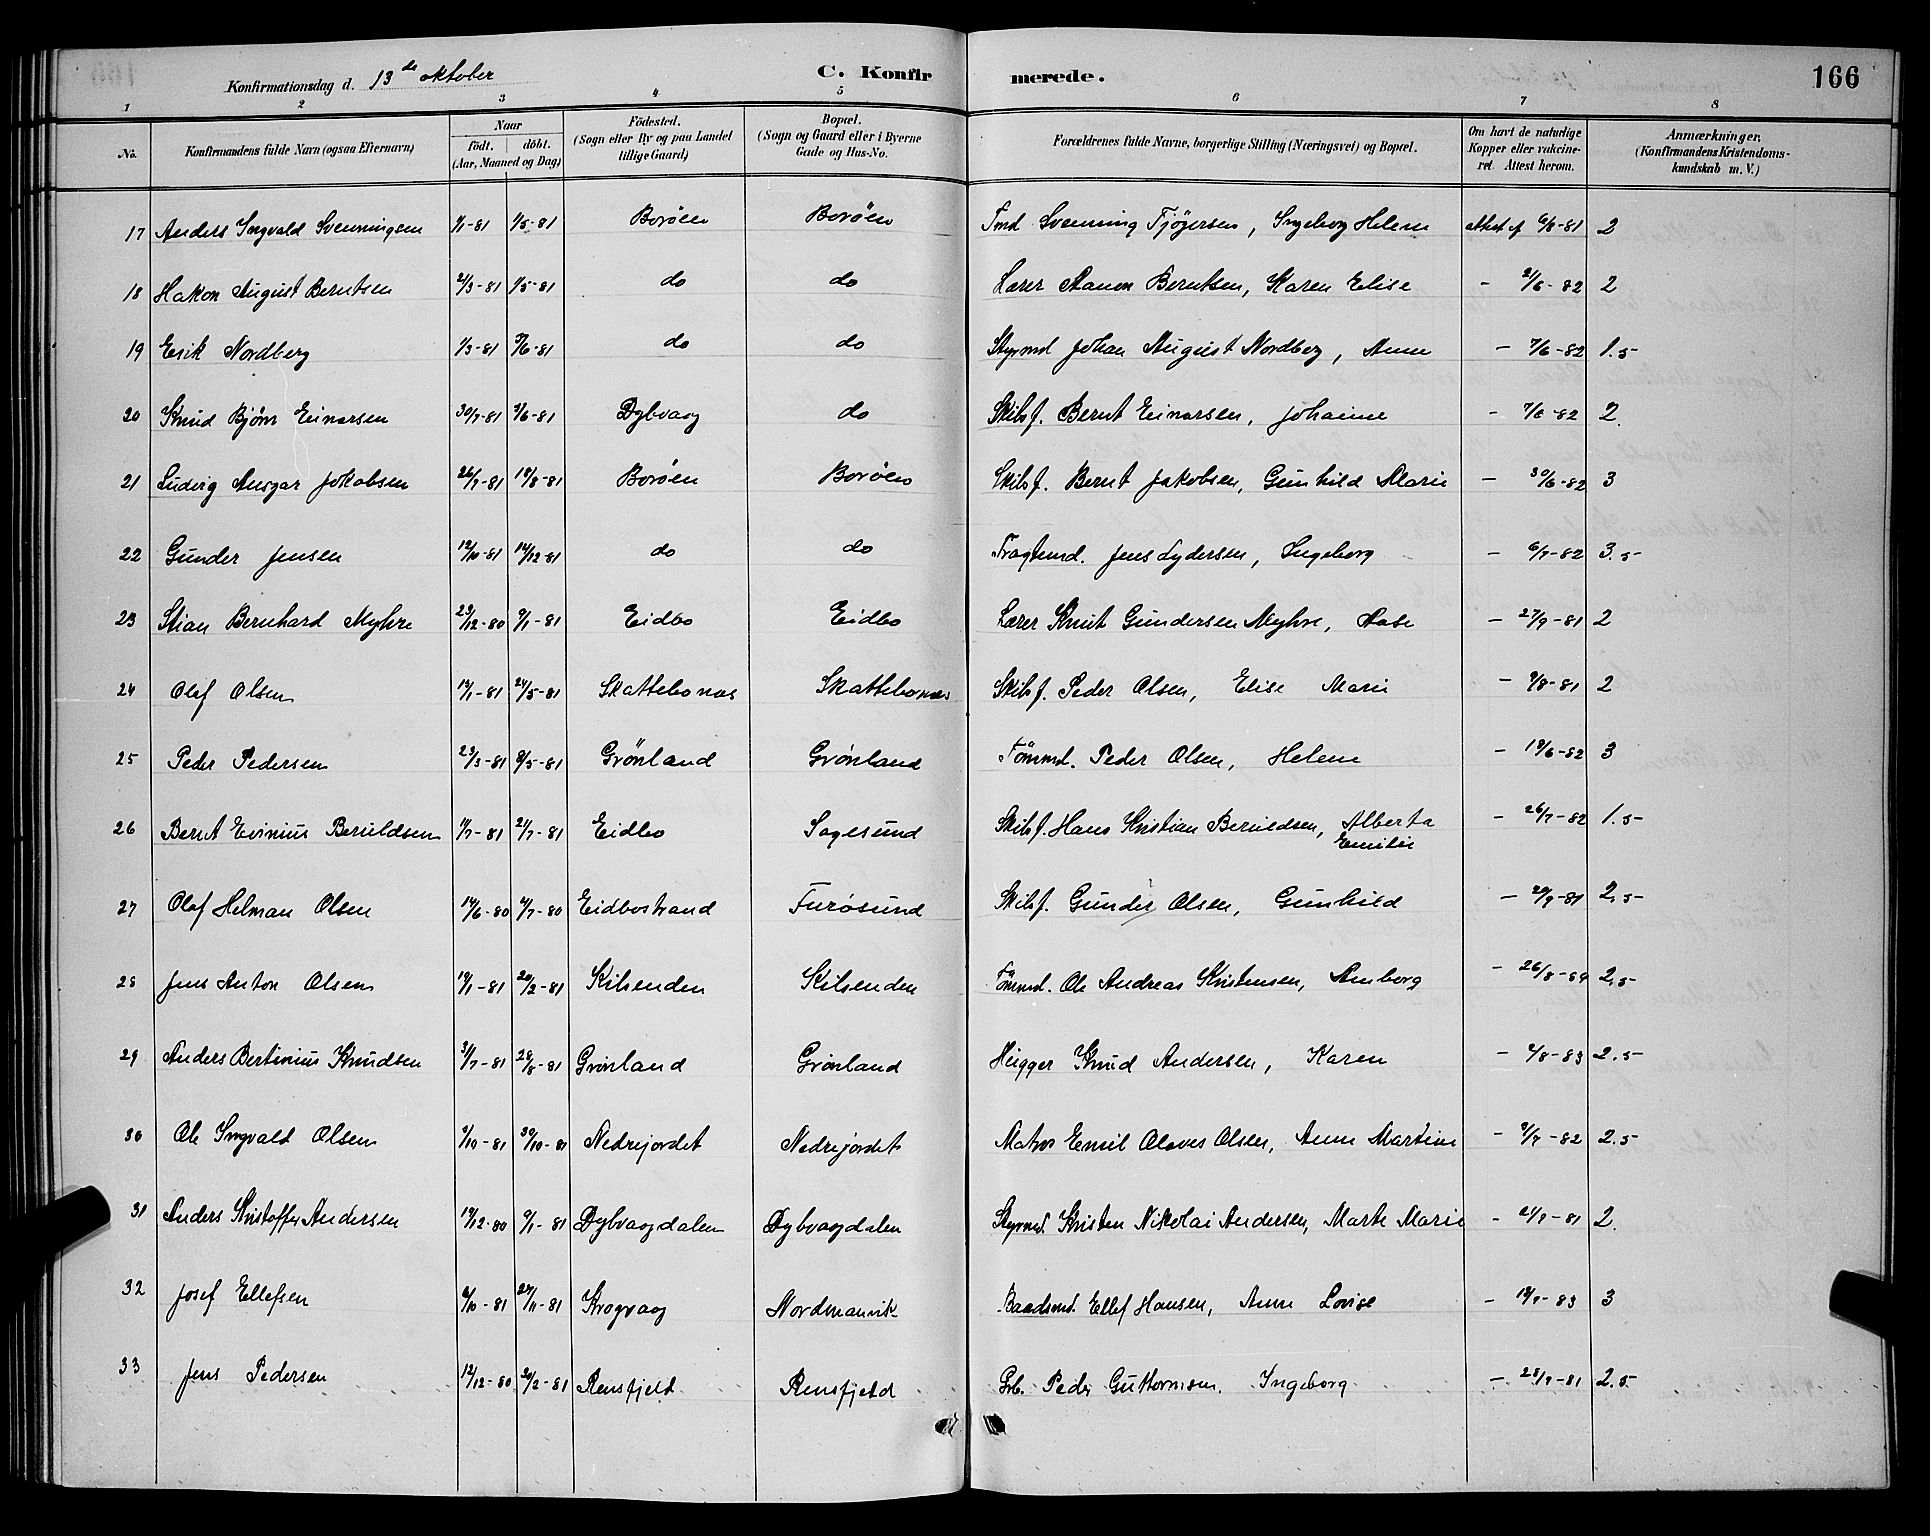 Konfirmationsdag d. 13de oktober C. Konfir merede. 166
1 2 3 4 5 6 7 8
No. Konfirmandens fulde Navn (ogsaa Efternavn) Naar födt. döbt. (Aar, Maaned og Dag) Födested. (Sogn eller By og paa Landet tillige Gaard) Bopæl. (Sogn og Gaard eller i Byerne Gade og Hus-No. Forældrenes fulde Navne, borgerlige Stilling (Næringsvei) og Bopæl. Om havt de naturlige Kopper eller vakcineret. Attest herom. Anmærkninger, (Konfirmandens Kristendomskundskab m. V.)
17 Anders Ingvald Svenningsen 1/1-81 1/5-81 Boröen Boröen Svenning Tjögersen, Ingeborg Helene attest af 6/8-81 2
18 Hakon August Berntsen 2/3-81 1/5-81 do do Lærer Aanon Berntsen, Karen Elise - 2/6-82 2
19 Erik Nordberg 1/3-81 /6-81 do do Styrmd Johan August Nordberg, Anne - 7/6-82 1.5
20 Knud Björn Einarsen 30/7-81 /6-81 Dybvaag do Skibsf. Bernt Einarsen, Johanne - 7/6-82 2.
21 Ludvig Ansgar Jakobsen 26/7-81 18/8-81 Boröen Boröen Skibsf. Bernt Jakobsen, Gunhild Marie - 30/6-82 3
22 Gunder Jensen 12/10-81 14/12-81 do do Fragtemd. Jens Lydersen, Ingeborg - 6/7-82 3.5
23 Stian Bernhard Myhre 23/12-80 9/1-81 Eidbo Eidbo Lærer Knut Gundersen Myhre, Aase - 27/9-81 2
24 Olaf Olsen 12/1-81 24/5-81 Skattebonæs Skattebonæs Skibsf. Peder Olsen, Elise Marie - 9/8-81 2
25 Peder Pedersen 23/3-81 8/5-81 Grönland Grönland Tömmd. Peder Olsen, Helene - 19/6-82 3
26 Bernt Evinius Beruldsen 1/7-81 2/7-81 Eidbo Sagesund Skibsf. Hans Kristian Beruldsen, Alberta Emilie - 26/7-82 1.5
27 Olaf Helman Olsen 14/6-80 4/7-80 Eidbostrand Furösund Skibsf. Gunder Olsen, Gunhild - 29/9-81 2,5
28 Jens Anton Olsen 19/1-81 20/2-81 Kilsenden Kilsenden Tömmd. Ole Andreas Kristensen, Amborg - 26/8-84 2,5
29 Anders Bertinius Knudsen 3/7-81 28/8-81 Grönland Grönland Knud Andersen, Karen - 2/8-83 2.5
30 Ole Ingvald Olsen 3/10-81 30/10-81 Nedrejordet Nedrejordet Matros Emil Olaves Olsen, Anne Martine - 9/7-82 2.5
31 Anders Kristoffer Andersen 19/12-80 9/1-81 Dybvaagdalen Dybvaagdalen Styrmd. Kristen Nikolai Andersen, Marte Marie - 2/9-81 2.
32 Josef Ellefsen 6/10-81 27/11-81 Krogvaag Nordmanvik Baadsmd. Ellef Hansen, Anne Lovise - 19/7-83 3
33 Jens Pedersen 12/12-80 20/2-81 Rensfjeld Rensfjeld Peder Guttormsen, Ingeborg - 28/9-81 2.5